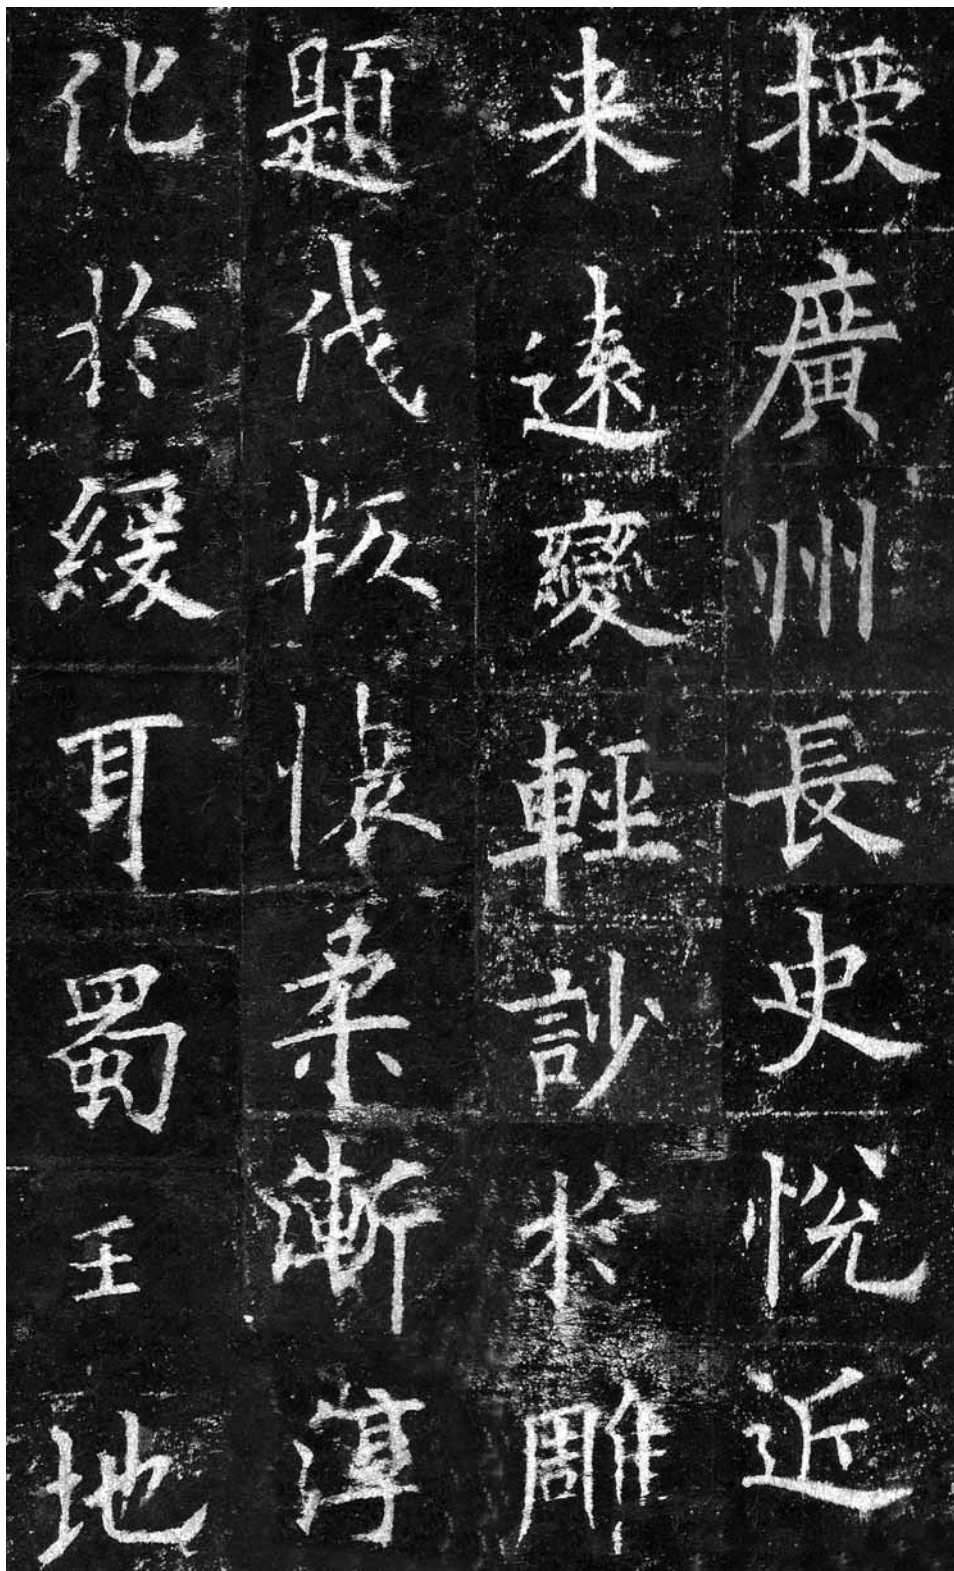 授廣州長史悅近
来遠變輕訬於雕
題伐叛懷柔漸淳
化於緩耳蜀王地